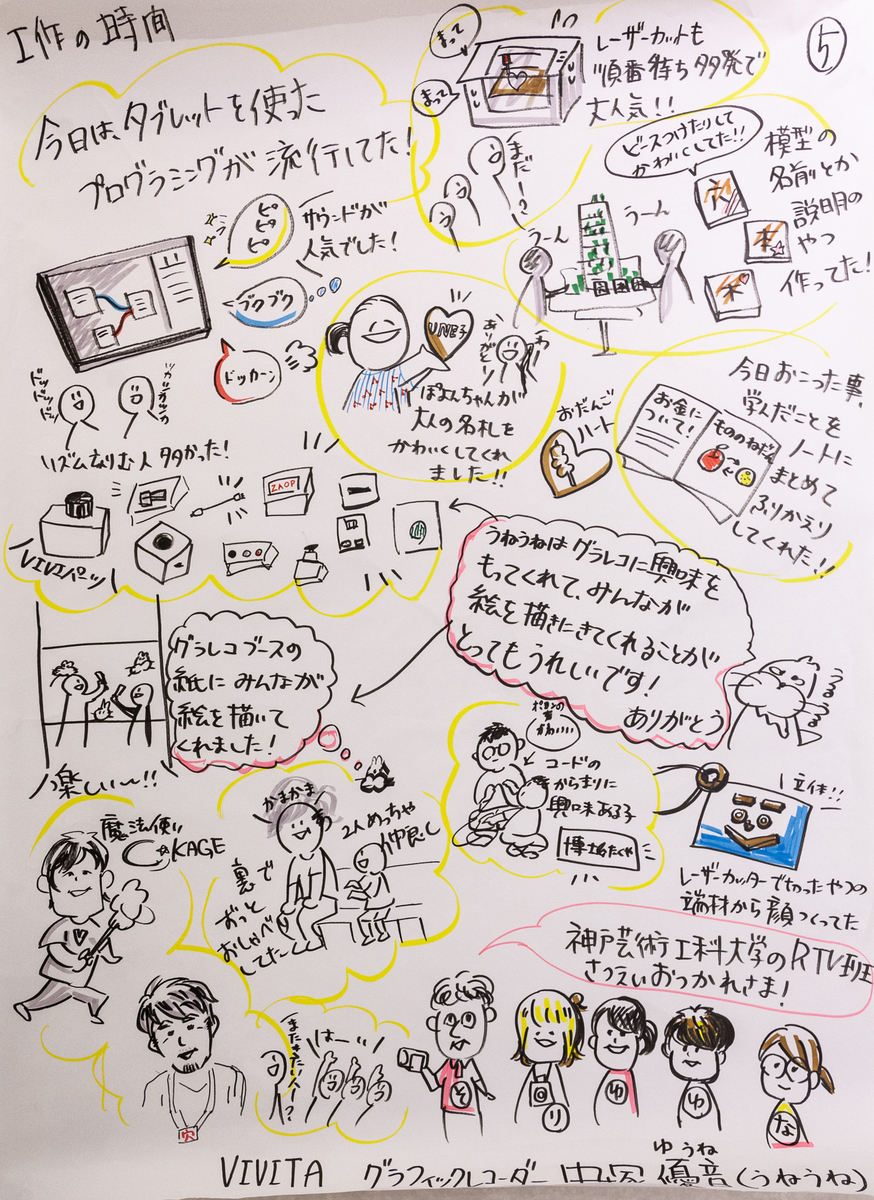 工作の時間
5
今日は、タブレットを使った
プログラミングが流行してた!
まって
まって
レーザーカットも
順番待ち多発で
大人気!!
まだー?
ビーズつけたりして
かわいくしてた!!
模型の
名前とか
説明の
やつ
作ってた!
うーん
うーん
穴
本
木
ピ
ピ
ピ
サウンドが
人気でした!
ブクブク
ドッカーン
ドッ
ドッ
ドッ
リズムきざむ人多かった!
UNE子
ありがとう
ぽよんちゃんが
大人の名札を
かわいくしてくれ
ました!!
おだんご
ハート
お金に
ついて!
もののねだん
今日おこった事、
学んだことを
ノートに
まとめて
ふりかえり
してくれた!!
ZAOP
VIVIパーツ
うねうねはグラレコに興味を
もってくれて、みんなが
絵を描きにきてくれることが
とってもうれしいです!
ありがとう
うるうるうる
グラレコブースの
紙にみんなが
絵を描いて
くれました!
楽しい〜!!
かわいい
コードの
からまりに
興味ある子
博士たくや
立体!!
レーザーカッターで切ったやつの
端材から顔つくってた
魔法使い
KAGE
かまかま
2人めっちゃ
仲良し
裏で
ずっと
おしゃべり
してた
神戸芸術工科大学のRTV班
さつえいおつかれさま!
穴
またやる人ー?
はーい
そ
り
ゆ
ゆ
な
ゆうね
VIVITA グラフィックレコーダー 中尾 優音(うねうね)